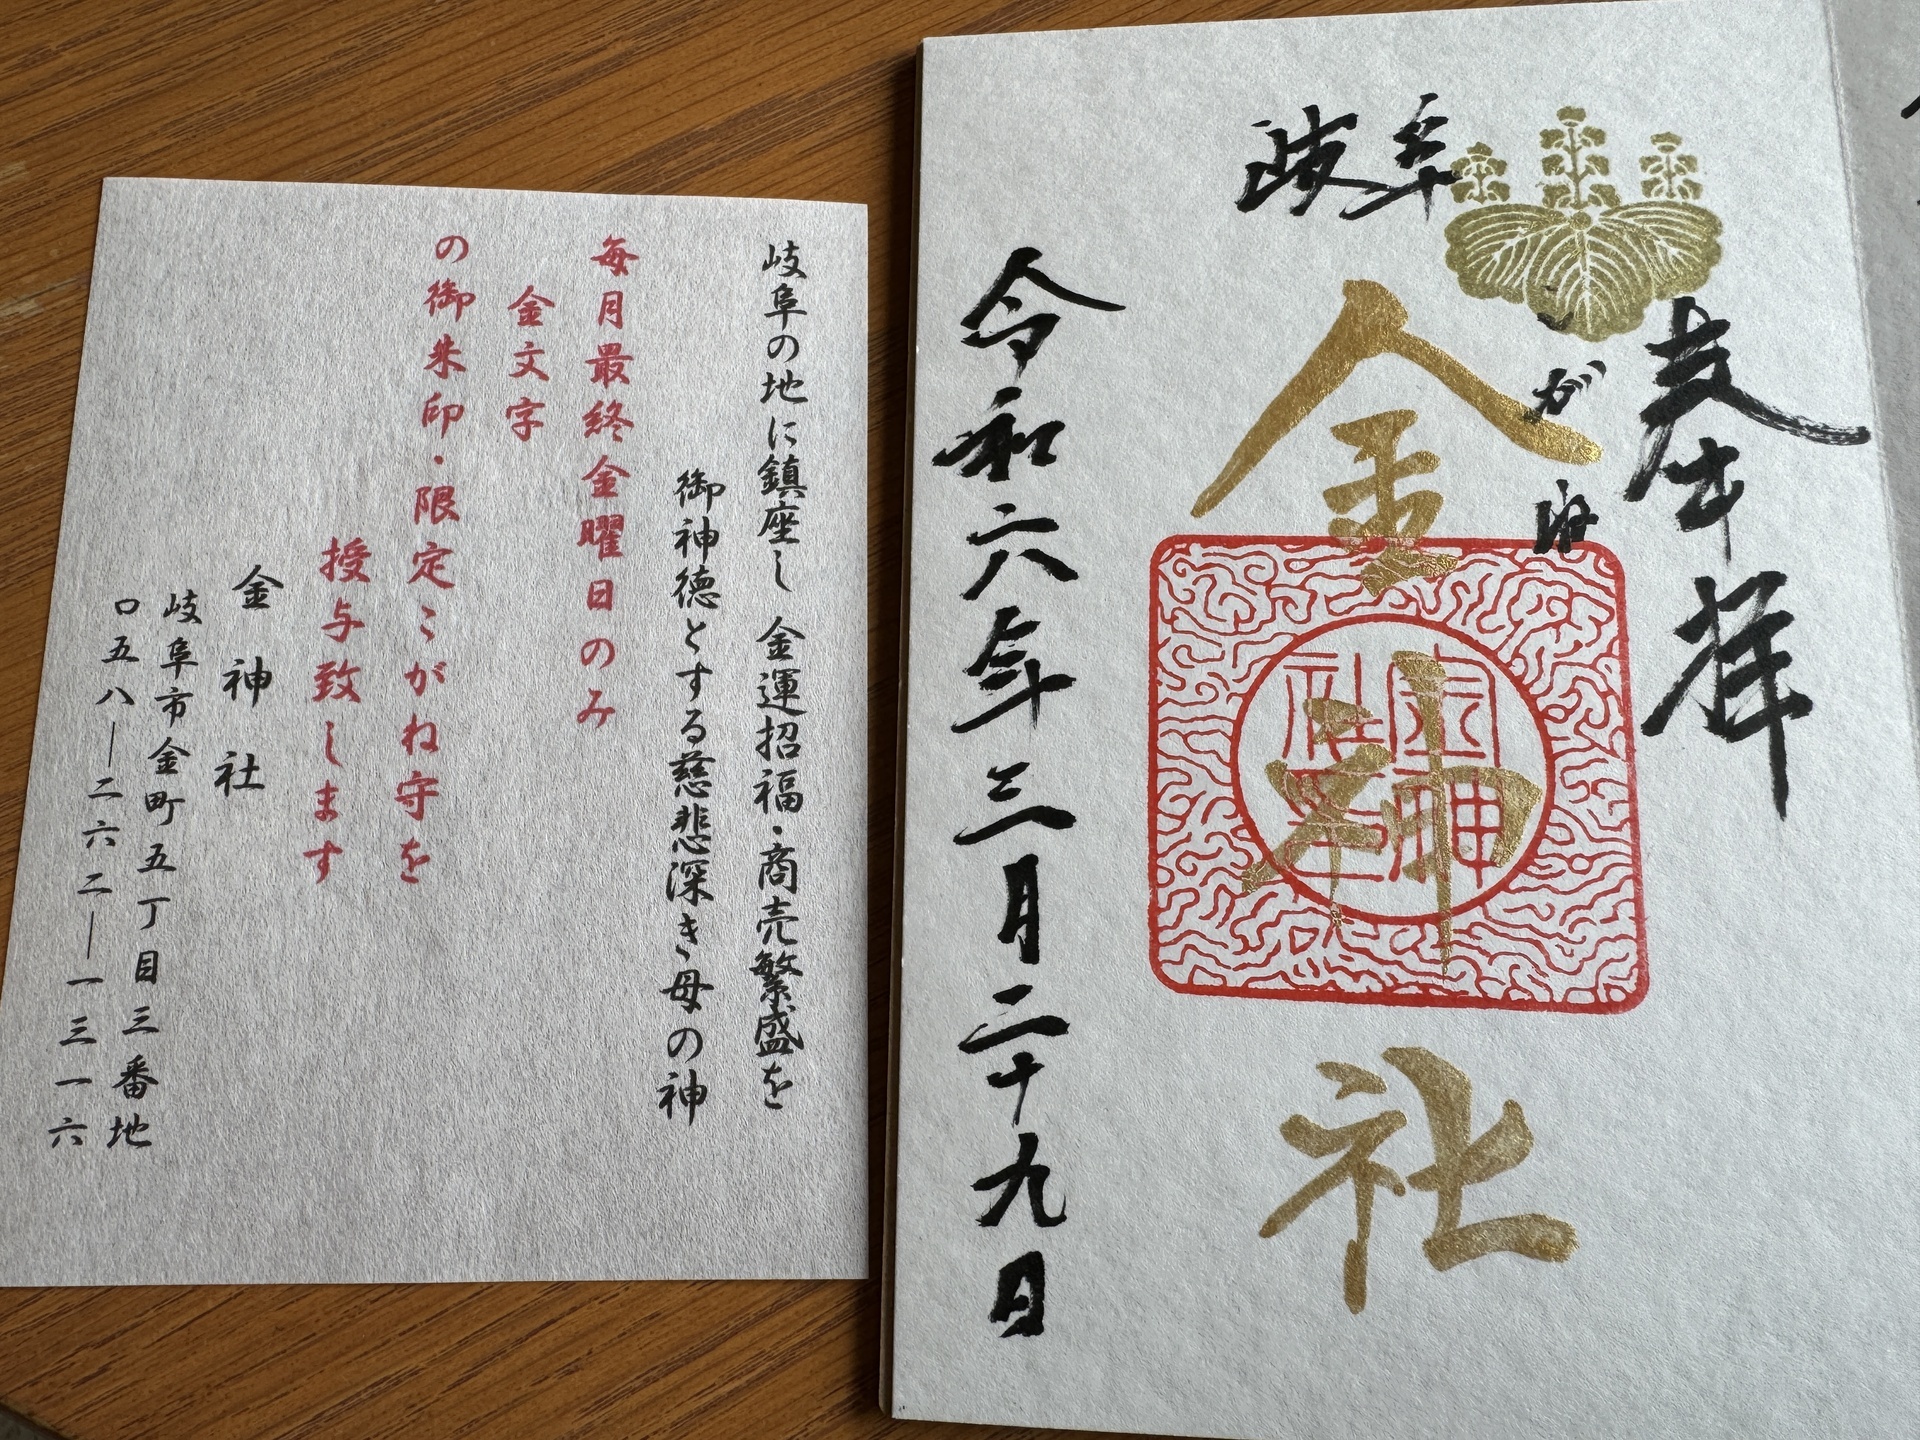 岐阜の地に鎮座し 金運招福・商売繁盛を
御神徳とする慈悲深き母の神
毎月最終金曜日のみ
金文字
の御朱印・限定こがね守を
授与致します
金神社
岐阜市金町五丁目三番地
〇五八―二六二―一三一六
奉拝
岐阜
こがね
金神社
金神社印
令和六年三月二十九日